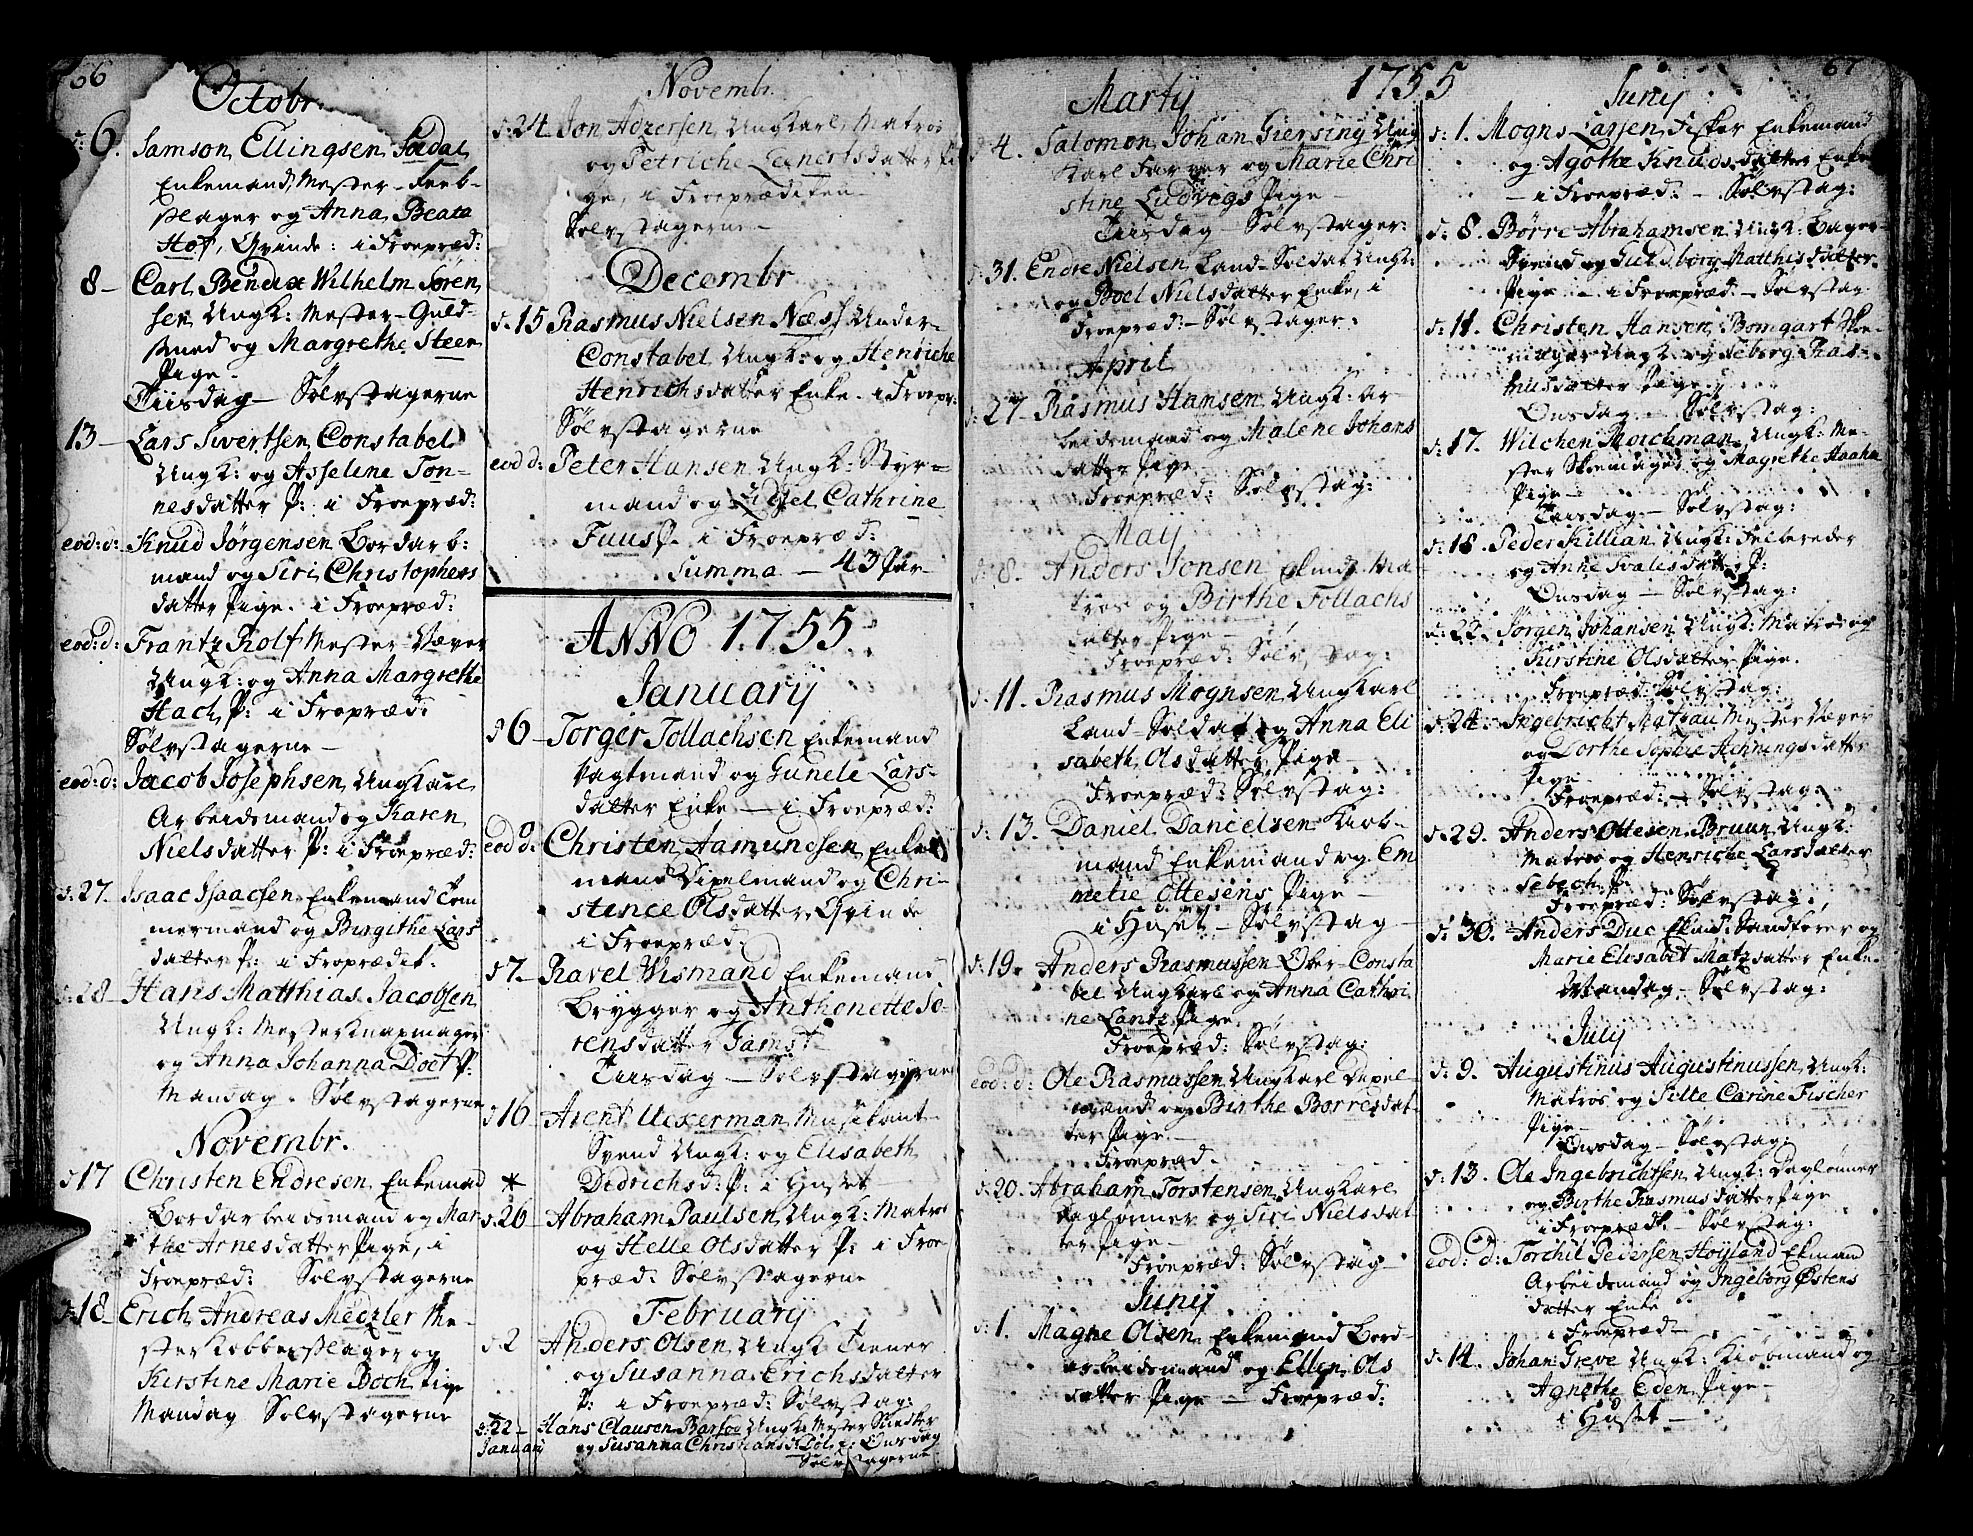 66
Octobr.
d: 6. Samson Ellingsen Soldal
Enkemand, Mester-Feeb-
slager og Anna Beata
Hof, Qvinde: i Froepræd:
8- Carl Bendix Wilhelm Søren
sen Ungk: Mester-Guld-
smed og Margrethe Steen
Pige-
Tiisdag- Sølvstagerne
13- Lars Sivertsen Constabel
Ungk: og Asseline Ton-
nesdatter P: i Froepræd:
eod: d: Knud Jørgensen Bordarb:
mand og Siri Christophers
datter Pige. i Froepræd:
eod: d: Frantz Rolf Mester Væver
Ungk: og Anna Margrethe
Hach P: i Fropræd:
Sølvstagerne-
eod: d: Jacob Josephsen Ungkarl
Arbeidsmand og Karen
Nielsdatter P: i Froepræd:
d: 27. Isaac Isaacsen Enkemand Tom
mermand og Birgithe Lars
datter P: i Froprædik:
d: 28- Hans Matthias Jacobsen
Ungk: Mester Knapmager
og Anna Johanna Doct P:
Mandag. Sølvstagerne
Novembr.
d: 17 Christen Endresen Enkemad
Bordarbeidsmand og Mar
the Arnesdatter Pige, i
Froepræd: Sølvstagerne
d: 18- Erich Andreas Medzler Me-
ster Kobberslager og
Kirstine Marie Boch Pige
Mandag Sølvstagerne
Novembr.
d: 24- Jon Adzersen Ungkarl Matros
og Petriche Leinertsdatter Pi
ge, i Froeprædiken
Sølvstagerne-
Decembr
d: 15 Rasmus Nielsen Næss Under-
Constabel Ungk: og Henriche
Henrichsdatter Enke. i Froepr:
Sølvstagerne
eod d: Peter Hansen Ungk: Styr-
mand og Cathrine
Fuus P. i Froepræd:
Summa - 43 Par-
ANNO 1755.
January
d 6- Torger Tollachsen Enkemand
Vagtmand og Gunele Lars-
datter Enke - i Froepræd:
eod d: Christen Aamundsen Enke
mand Dixelmand og Chri-
stence Olsdatter Qvinde
i Froepræd:
d 7- Ravel Wismand Enkemand
Brygger og Anthonette Sø-
rensdatter Gamst-
Tiisdag - Sølvstagerne
d 16- Arent Uckerman Musikant-
Svend Ungk: og Elisabeth
* Didrichsd: P: i Huset
d: 26- Abraham Paulsen Ungk: Matros
og Helle Olsdatter P: i Froe-
præd: Sølvstagerne
February
d 2 Anders Olsen Ungk Tiener
og Susanna Erichsdatter
P: i Froepræd: Sølvstag:
d: 22- Hans Clausen Barsøe Ungk: Mester Snedker
January og Susanna Christians Onsdag
Sølvstagerne
1755
67
Marty
d 4. Salomon Johan Giersing Ung
karl Farver og Marie Chri
stine Ludvigs Pige-
Tiisdag - Sølvstager:
d: 31. Endre Nielsen Land-Soldat Ungk:
og Boel Nielsdatter Enke, i
Froepræd: - Sølvstager:
April
d: 27. Rasmus Hansen Ungk: Ar-
beidsmand og Malene Johans
datter Pige
Froepræd: Sølvstag:
Maij
d: 8. Anders Jonsen Ekmd: Ma
tros og Birthe Tollachs
datter Pige-
Froepræd: Sølvstag:
d: 11. Rasmus Mognsen Ungkarl
Land-Soldat og Anna Eli
sabeth Olsdatter Pige-
Froepræd: Sølvstag:
d: 13. Daniel Danielsen Kiøb-
mand Enkemand og Em
metie Ottesens Pige-
i Huset - Sølvstag-
d: 19. Anders Rasmussen Ober-Consta
bel Ungkarl og Anna Cathri
ne Lantz Pige.
Froepræd: Sølvstag:
eod: d: Ole Rasmussen Ungkarl Dixel-
mand og Birthe Borresdat-
ter Pige-
Froepræd-
d: 20. Abraham Torstensen Ungkarl
Daglønner og Siri Nielsdat
ter Pige-
Froepræd: Sølvstag-
Junij
d: 1. Magne Olsen Enkemand Bord-
arbeidsmand og Ellen Ols
datter Pige - Froepræd:
Junij
d: 1. Mogns Larsen Fisker Enkemand
og Agothe Knudsdatter Enke
- i Froepræd: - Sølvstag:
d: 8. Børre Abrahamsen Ungk: Bager-
Svend og Guldborg Matthisdatter
Pige - i Froepræd - Sølvstag
d: 11. Christen Hansen Bomgart Skoe-
mager Ungk og Seborg Ras-
musdatter Pige
Onsdag - Sølvstag:
d: 17. Wilchen Morchman Ungk: Me-
ster Skoemager og Magrethe Haaha
Pige-
Tiisdag - Sølvstag:
d: 18. Peder Killian Ungk: Feltbereder
og Anne Ivalisdatter P:
Onsdag - Sølvstag:
d: 22. Jørgen Johansen Ungk: Matros og
Kirstine Olsdatter Pige.
Froepræd: Sølvstag:
d: 24. Ingebricht Matzau Mester Væver
og Dorthe Sophie Henningsdatter
Pige-
Froepræd: - Sølvstag:
d: 29. Anders Ottesen Bruun Ungk:
Matros og Henriche Larsdatter
Sebech P:
Froepræd: Sølvstag:
d: 30. Anders Duc Ekmd: Sandfører og
Marie Elisabet Matzdatter Enke-
Mandag - Sølvstag:
July
d: 9. Augustinus Augustinussen Ungk:
Matros og Silte Carine Fischer
Pige-
Onsdag - Sølvstag:
d: 13. Ole Ingebrichtsen Ungk: Daglønner
og Birthe Rasmusdatter Pige
i Froepræd: - Sølvstag:
eod: d: Torchil Pedersen Høyland Ekmand
Arbeidsmand og Ingeborg Østens
datter Enke
i Froepræd-
d: 14. Johan Greve Ungk: Kiøbmand og
Agnethe Eden Pige-
i Huset-